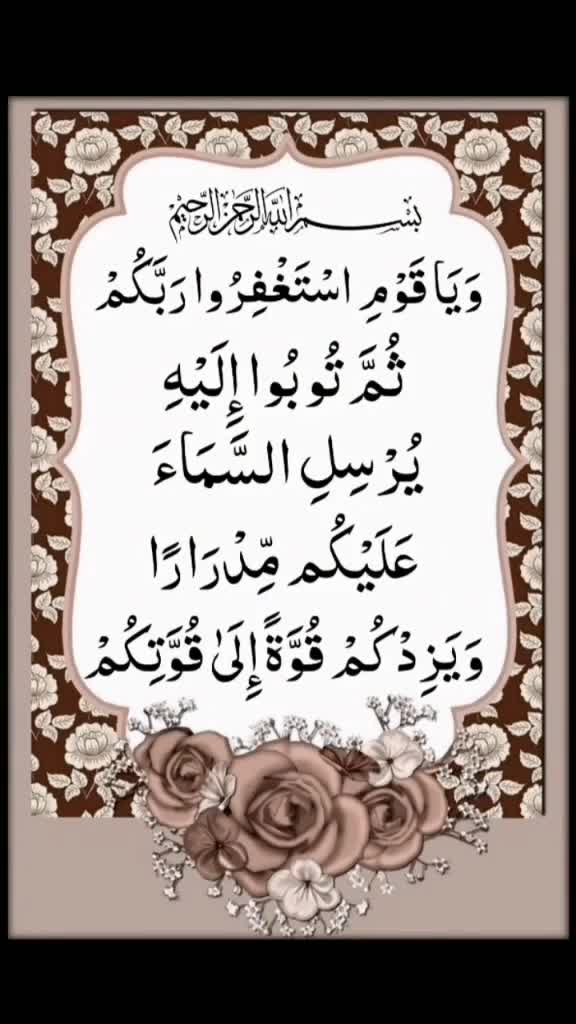 بسم الله الرحمن الرحيم
وَيَا قَوْمِ اسْتَغْفِرُوا رَبَّكُمْ
ثُمَّ تُوبُوا إِلَيْهِ
يُرْسِلِ السَّمَاءَ
عَلَيْكُم مِّدْرَارًا
وَيَزِدْكُمْ قُوَّةً إِلَىٰ قُوَّتِكُمْ